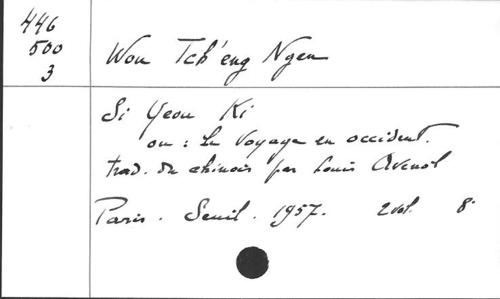 446
500
3
Wou Tch'eng Ngen
Si Yeou Ki
ou : le Voyage en occident.
trad. du chinois par Louis Avenol
Paris. Seuil. 1957. 2 vol. 8°